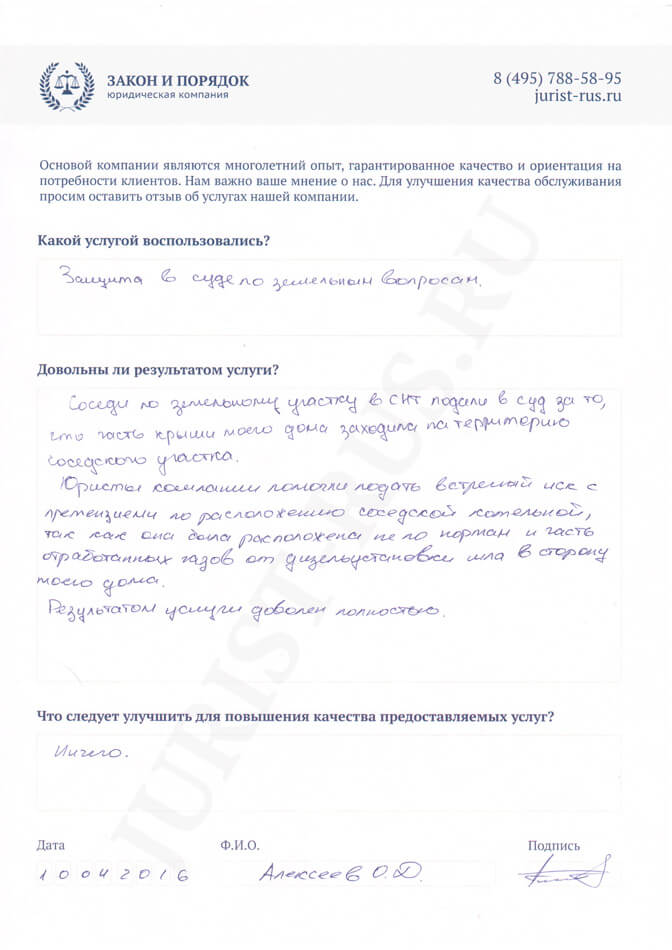 ЗАКОН И ПОРЯДОК
юридическая компания
8 (495) 788-58-95
jurist-rus.ru
Основой компании являются многолетний опыт, гарантированное качество и ориентация на
потребности клиентов. Нам важно ваше мнение о нас. Для улучшения качества обслуживания
просим оставить отзыв об услугах нашей компании.
Какой услугой воспользовались?
Защита в суде по земельным вопросам.
Довольны ли результатом услуги?
Соседи по земельному участку в СНТ подали в суд за то,
что часть крыши моего дома заходила на территорию
соседского участка.
Юристы компании помогли подать встречный иск с
претензиями по расположению соседской котельной,
так как она была расположена не по нормам и часть
отработанных газов от дизельустановки шла в сторону
моего дома.
Результатом услуги доволен полностью.
Что следует улучшить для повышения качества предоставляемых услуг?
Ничего.
Дата
Ф.И.О.
Подпись
10042016
Алексеев О.Д.
JURIST-RUS.RU